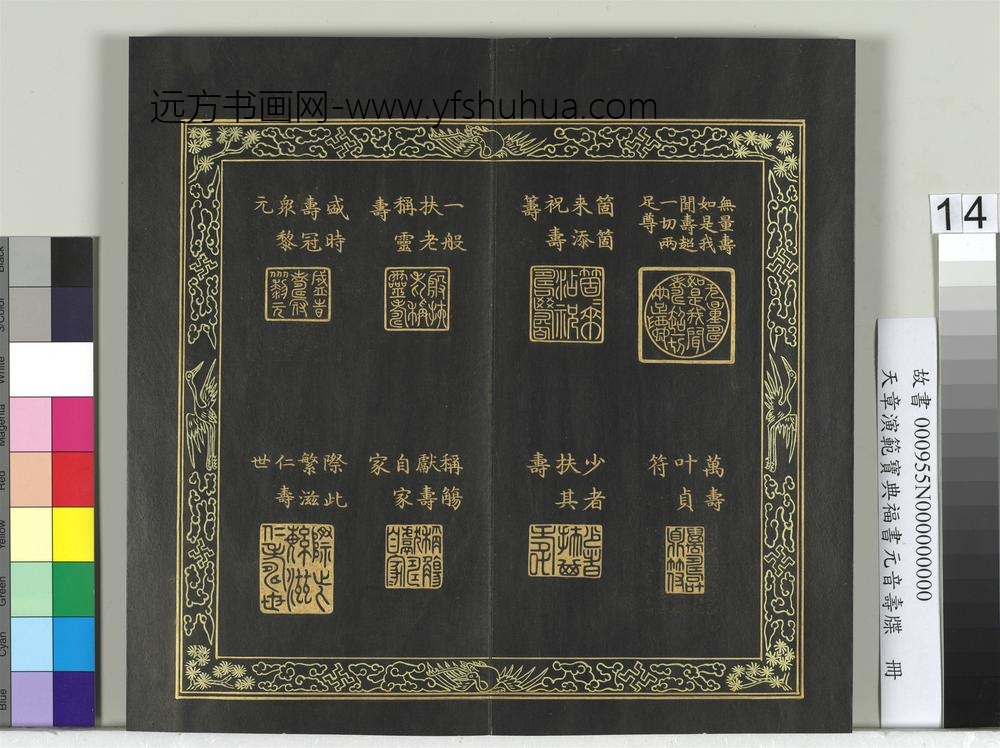 远方书画网-www.yfshuhua.com
無量壽
如是我
聞壽超
一切兩
足尊
箇箇
来添
祝壽
籌
一般
扶老
稱靈
壽
盛時
壽冠
衆黎
元
萬壽
叶貞
符
少者
扶其
壽
稱觴
獻壽
自家
家
際此
繁滋
仁壽
世
14
故書 000955N000000000
天章演範寶典福書元音壽牒 冊
Black
3/Color
White
Magenta
Red
Yellow
Green
Cyan
Blue